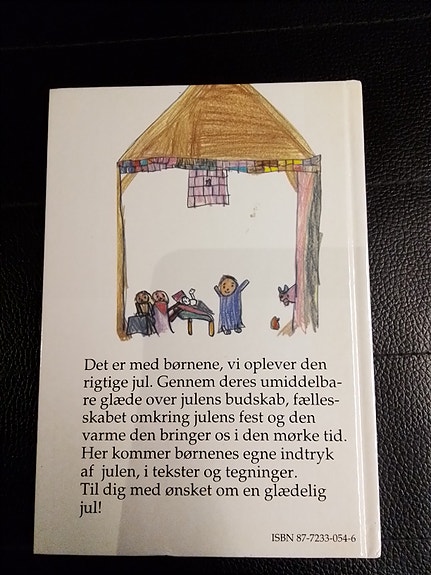 Det er med børnene, vi oplever den
rigtige jul. Gennem deres umiddelba-
re glæde over julens budskab, fælles-
skabet omkring julens fest og den
varme den bringer os i den mørke tid.
Her kommer børnenes egne indtryk
af julen, i tekster og tegninger.
Til dig med ønsket om en glædelig
jul!
ISBN 87-7233-054-6